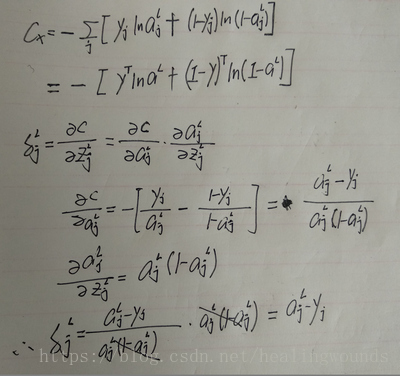 Cₓ = -∑ⱼ [yⱼ ln aⱼᴸ + (1-yⱼ) ln(1-aⱼᴸ)]
= - [yᵀ ln aᴸ + (I-y)ᵀ ln(I-aᴸ)]
δⱼᴸ = ∂C/∂zⱼᴸ = ∂C/∂aⱼᴸ · ∂aⱼᴸ/∂zⱼᴸ
∂C/∂aⱼᴸ = -[yⱼ/aⱼᴸ - (1-yⱼ)/(1-aⱼᴸ)] = (aⱼᴸ-yⱼ)/(aⱼᴸ(1-aⱼᴸ))
∂aⱼᴸ/∂zⱼᴸ = aⱼᴸ(1-aⱼᴸ)
∴ δⱼᴸ = (aⱼᴸ-yⱼ)/(aⱼᴸ(1-aⱼᴸ)) · aⱼᴸ(1-aⱼᴸ) = aⱼᴸ-yⱼ
https://blog.csdn.net/healingwounds